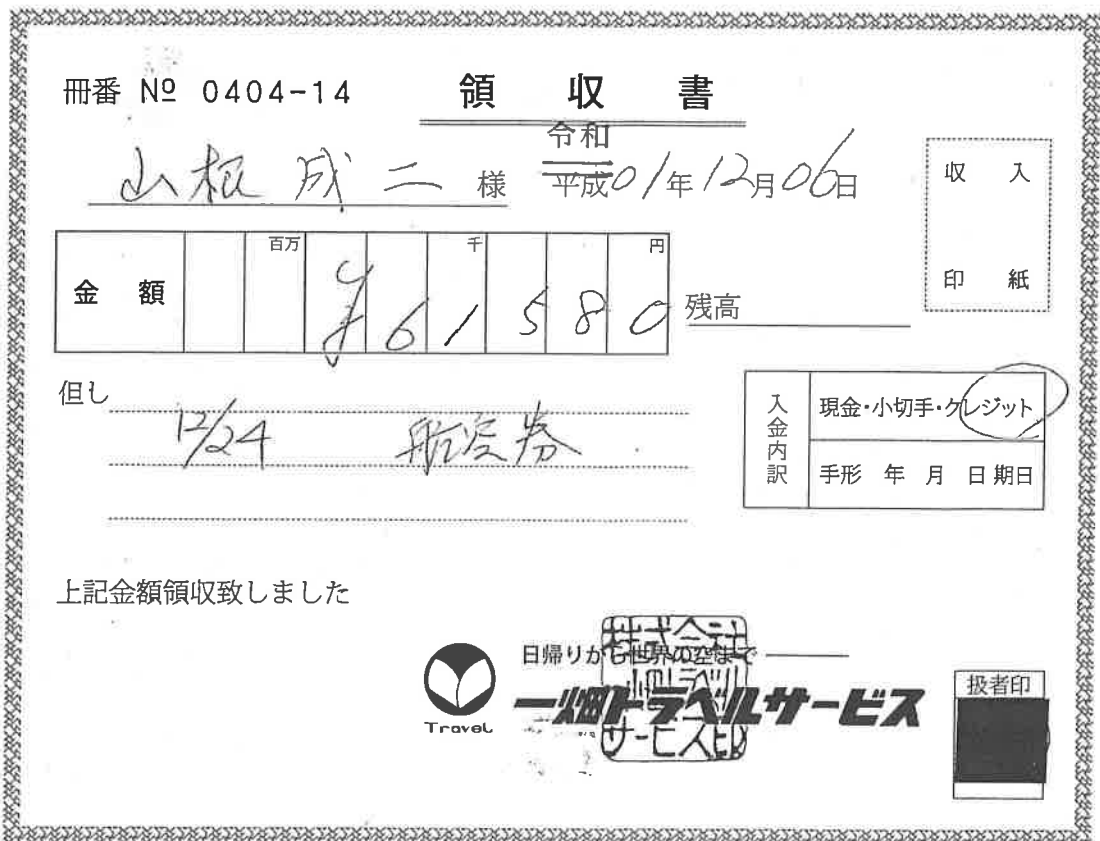 冊番 № 0404-14
領収書
山根 成二 様
令和
平成 01年12月06日
収入
印紙
金額 百万 千 円
¥61580
残高
但し
12/24 航空券
入金内訳
現金・小切手・クレジット
手形 年 月 日期日
上記金額領収致しました
日帰りから世界の空まで
Travel
一畑トラベルサービス
株式会社
一畑トラベル
サービス印
扱者印